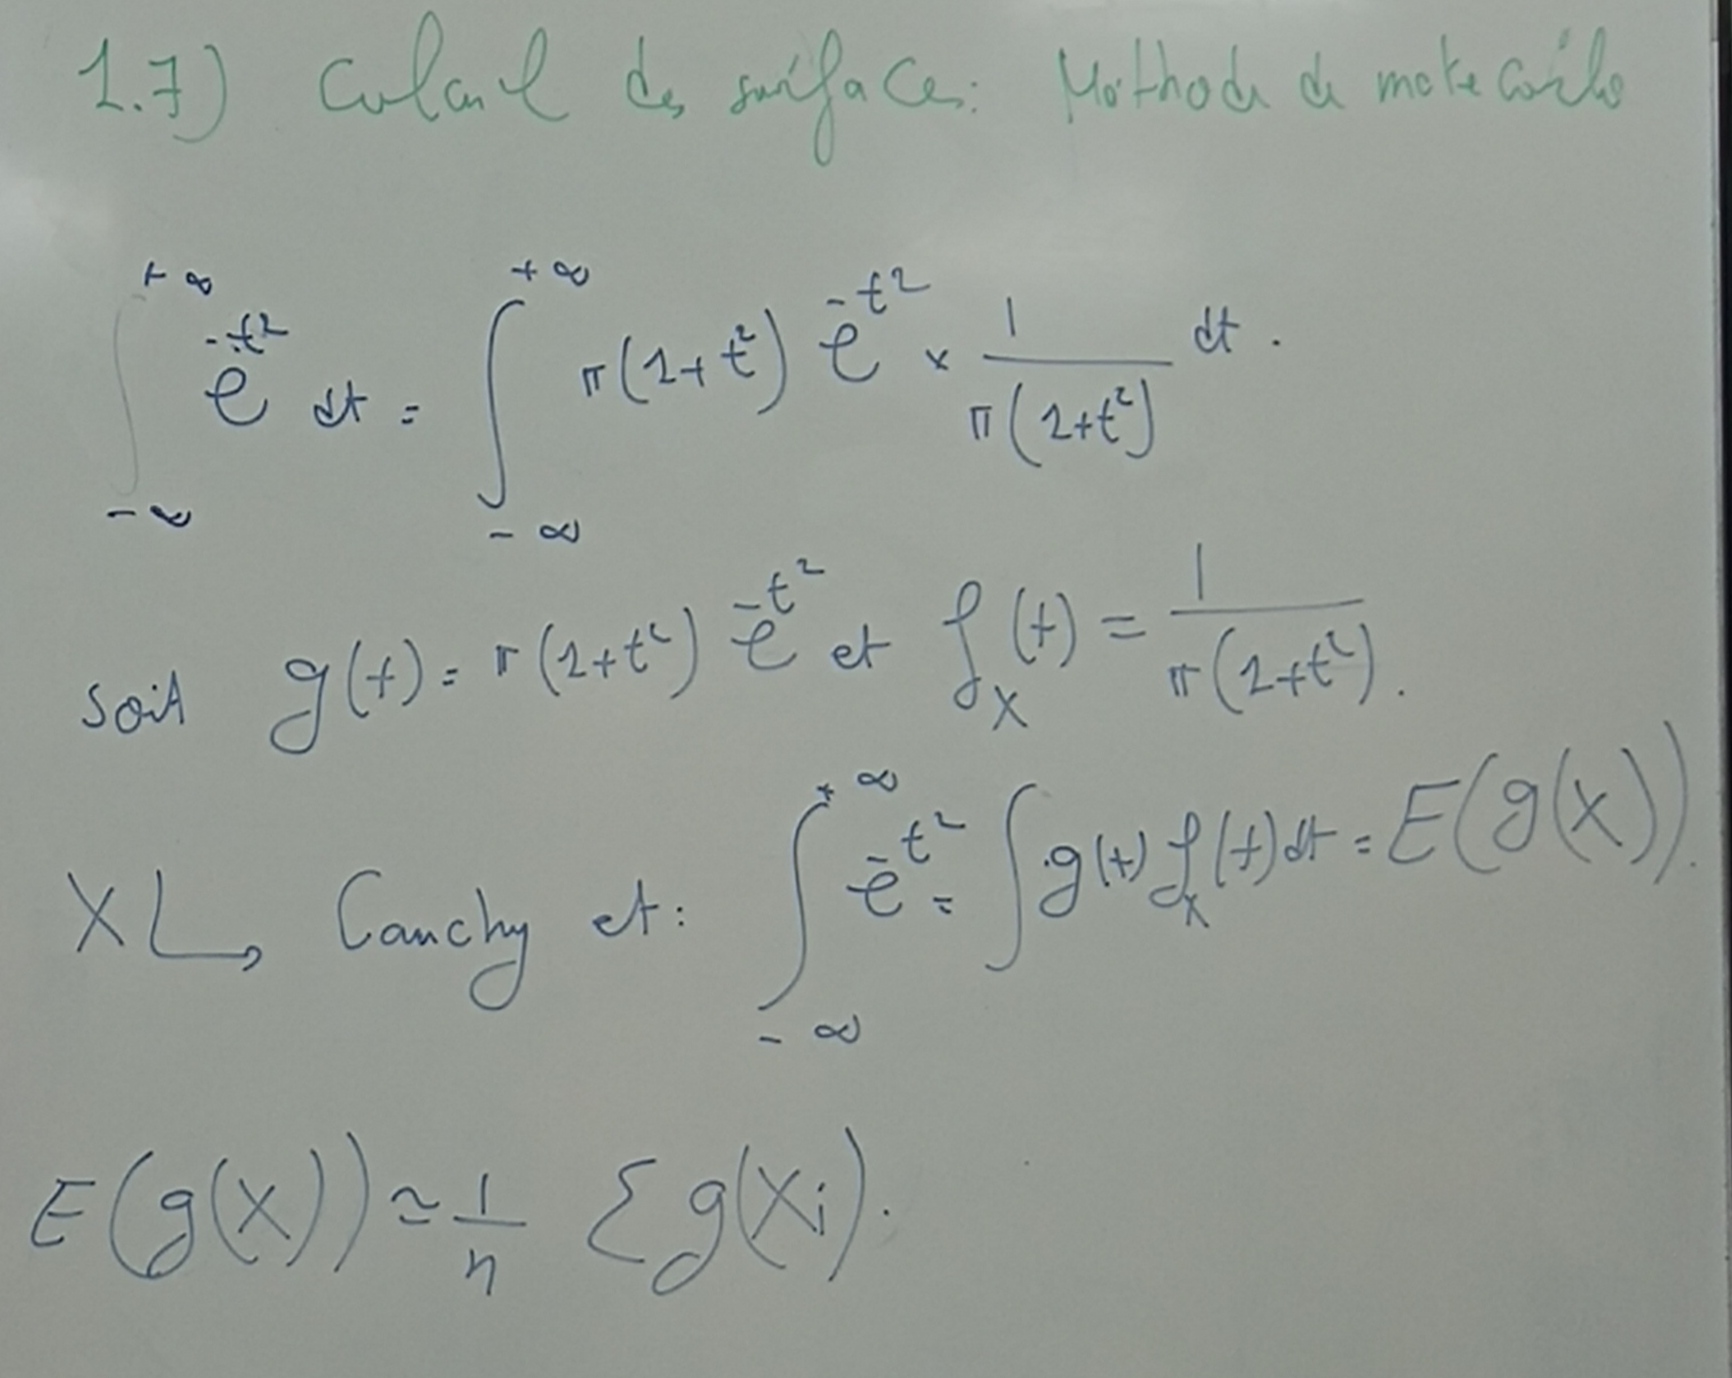 1.7) Calcul des surfaces: Méthode de monte carlo
∫_{-∞}^{+∞} e^{-t²} dt = ∫_{-∞}^{+∞} π(1+t²) e^{-t²} × 1/(π(1+t²)) dt.
soit g(t) = π(1+t²) e^{-t²} et f_X(t) = 1/(π(1+t²)).
X ↳ Cauchy et: ∫_{-∞}^{+∞} e^{-t²} = ∫ g(t) f_X(t) dt = E(g(X)).
E(g(X)) ≃ 1/n Σ g(Xi).